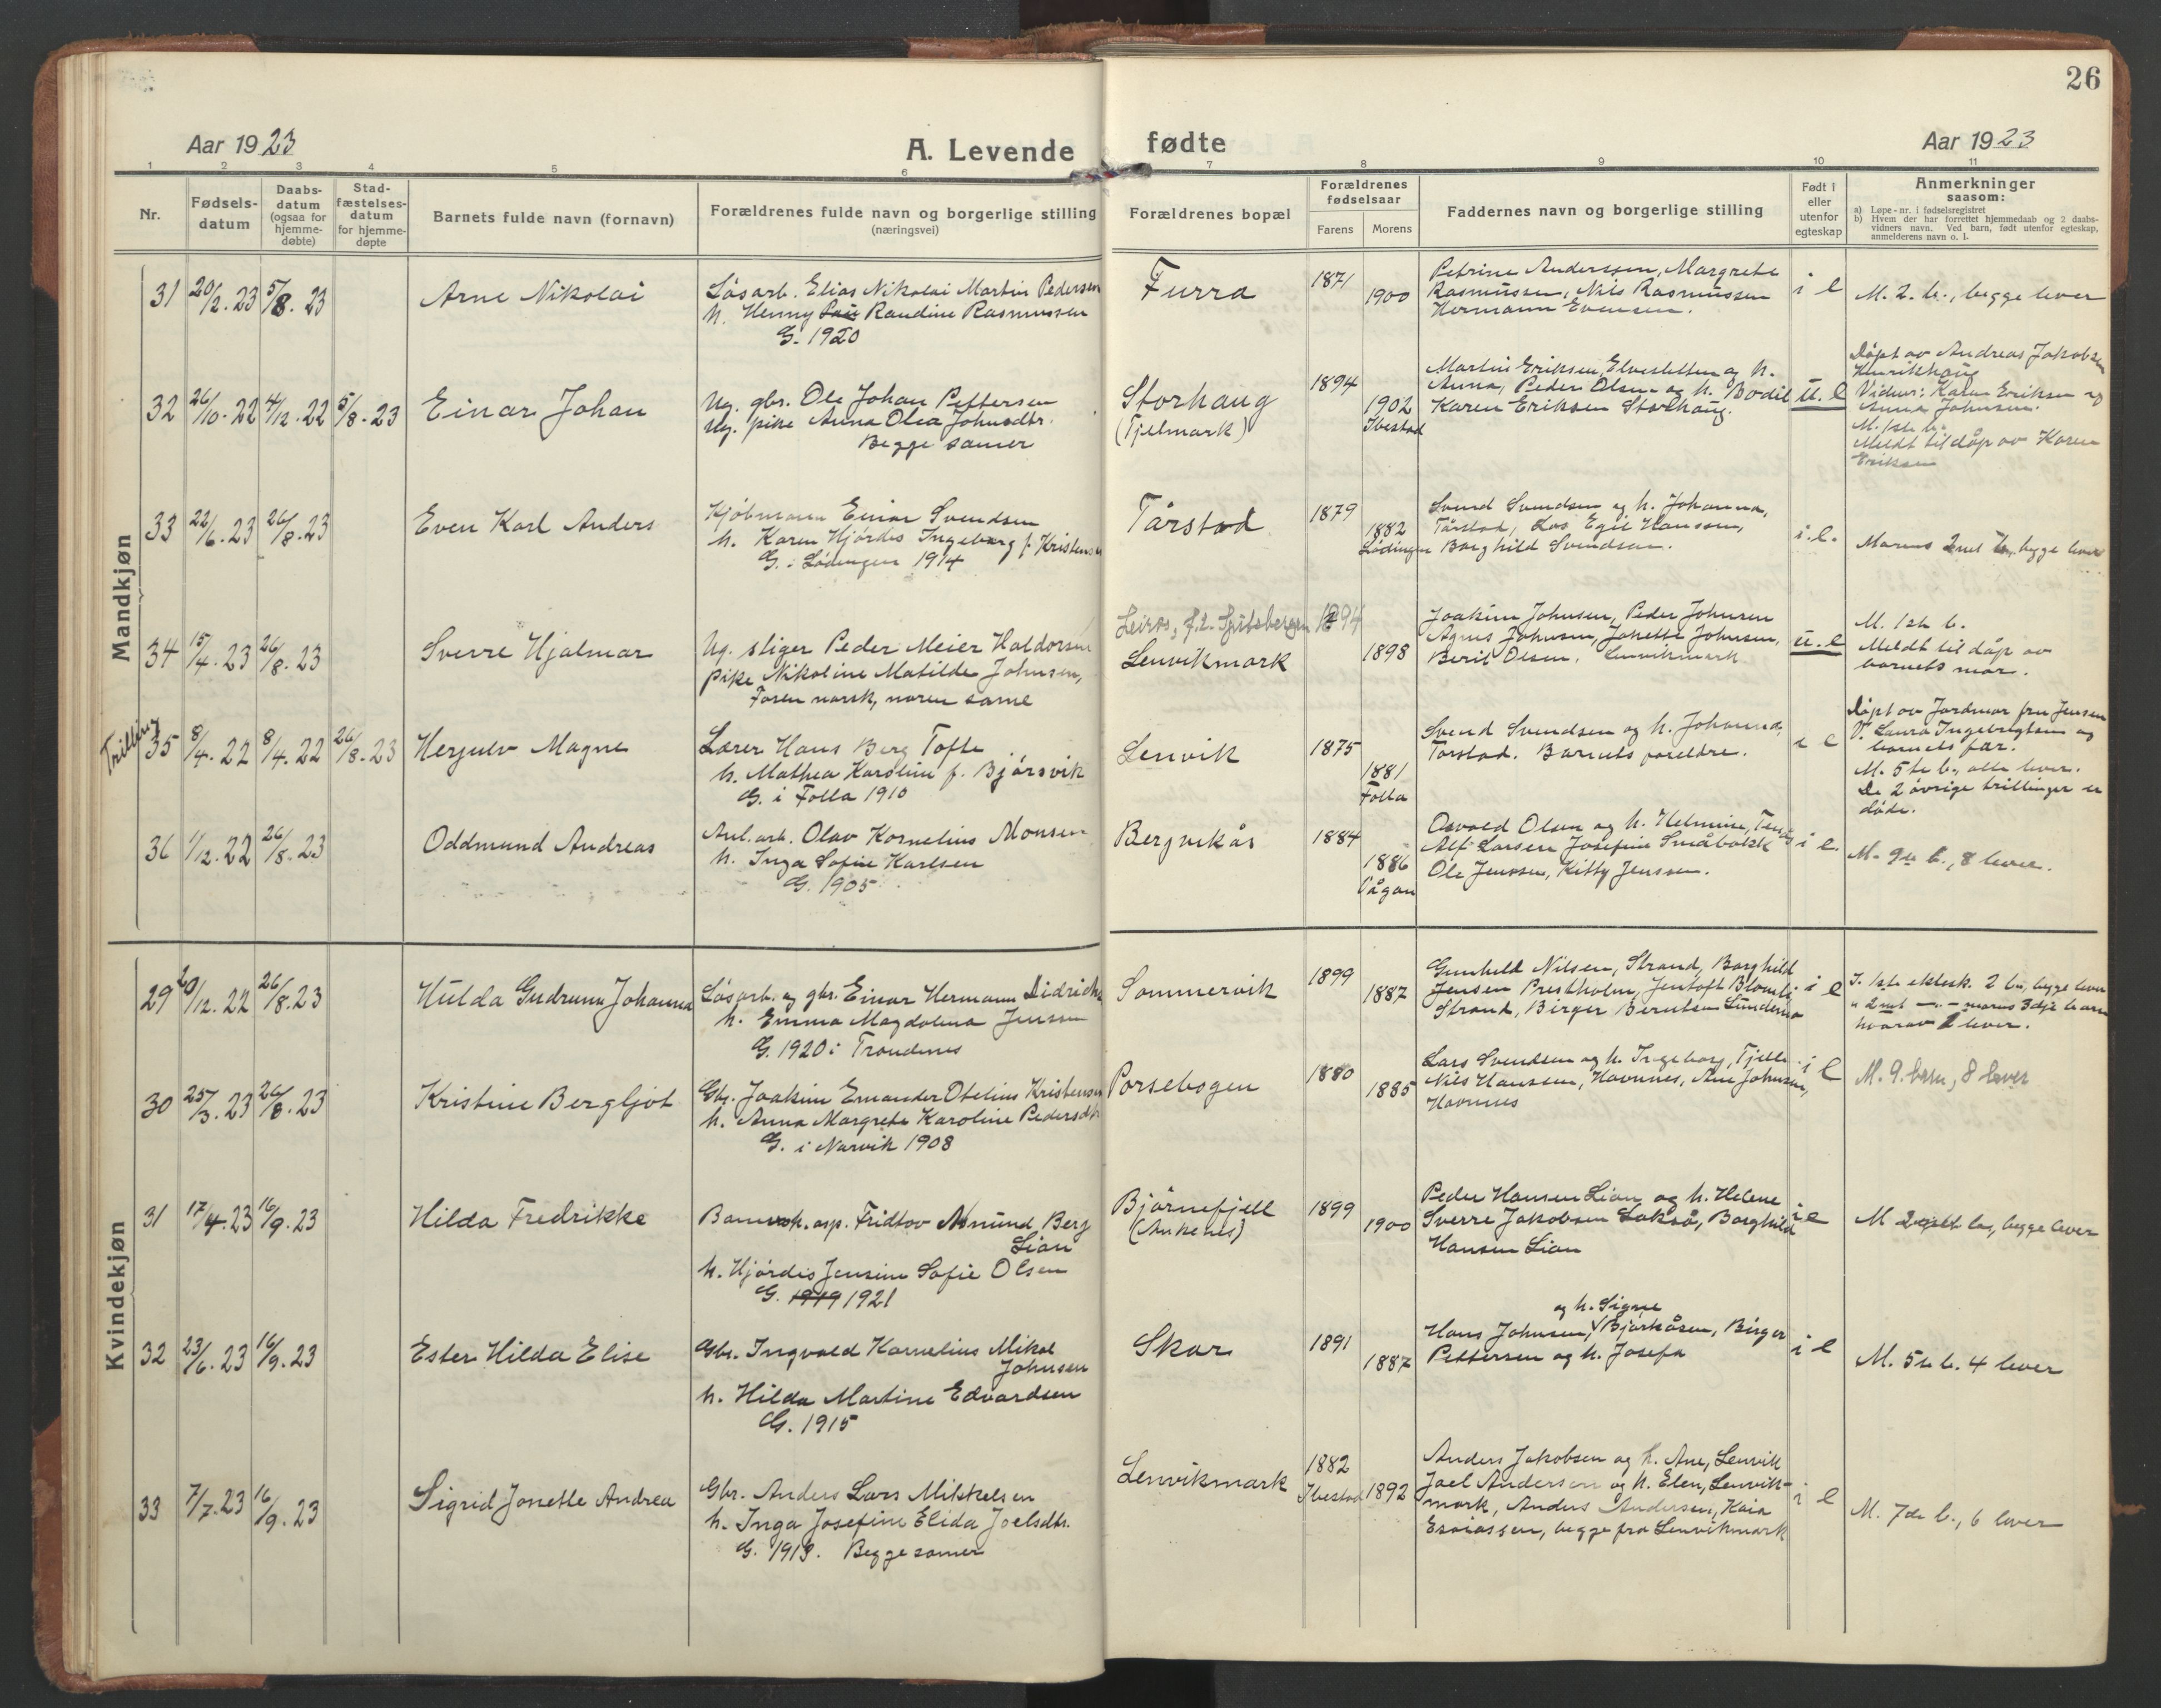 26
Aar 1923
A. Levende fødte
Aar 1923
1 2 3 4 5 6 7 8 9 10 11
Nr.
Fødsels-
datum
Daabs-
datum
(ogsaa for
hjemme-
døbte)
Stad-
fæstelses-
datum
for hjemme-
døpte
Barnets fulde navn (fornavn)
Forældrenes fulde navn og borgerlige stilling
(næringsvei)
Forældrenes bopæl
Forældrenes
fødselsaar
Farens
Morens
Faddernes navn og borgerlige stilling
Født i
eller
utenfor
egteskap
Anmerkninger
saasom:
a) Løpe-nr. i fødselsregistret
b) Hvem der har forrettet hjemmedaab og 2 daabs-
vidners navn. Ved barn, født utenfor egteskap,
anmelderens navn o. l.
Mandkjøn
31
20/2.23
5/8.23
Arne Nikolai
Løsarb. Elias Nikolai Martin Pedersen
h. Henny Raudine Rasmussen
G. 1920
Furra
1871
1900
Petrine Anderssen, Margrete
Rasmussen, Nils Rasmussen
Hermann Evensen.
i e
M. 2. b., begge lever
32
26/10.22
4/12.22
5/8.23
Einar Johan
Ug. gbr. Ole Johan Pettersen
Ug. pike Anna Olea Johnsdtr.
Begge samer
Storhaug
(Tjelmark)
1894
1902
Ibestad
Martin Eriksen, Elvesletten og h.
Anna, Peder Olsen og h. Bodil
Karen Eriksen Storhaug.
u. e
Døpt av Andreas Jakobsen
Henrikhaug
Vidner: Karen Eriksen og
Anna Johnsen.
M. 1ste b.
Meldt til dåp av Karen
Eriksen
33
22/6.23
26/8.23
Even Karl Anders
Kjøbmann Einar Svendsen
h. Karen Hjørdis Ingeborg f. Kristensen
G. i Lødingen 1914
Tårstad
1879
1882
Lødingen
Svend Svendsen og h. Johanna,
Tårstad, Egil Hansen,
Borghild Svendsen.
i. e.
Morens 2net b., begge lever
34
15/4.23
26/8.23
Sverre Hjalmar
Ug. stiger Peder Meier Haldorsen
pike Nikoline Matilde Johnsen,
Faren norsk, moren same
Leiros, f.t. Spitsbergen
Lenvikmark
1894
1898
Joakim Johnsen, Peder Johnsen
Agnes Johnsen, Jonette Johnsen,
Beril Olsen. Lenvikmark
u. e
M. 1ste b.
Meldt til dåp av
barnets mor.
Trilling
35
8/4.22
8/4.22
26/8.23
Hergulv Magne
Lærer Hans Berg Tofte
h. Mathea Karoline f. Bjørsvik
G. i Folla 1910
Lenvik
1875
1881
Folla
Svend Svendsen og h. Johanna,
Tårstad. Barnets foreldre.
i e
Døpt av Jordmor fru Jensen
V. Laura Ingebrigtsen og
barnets far.
M. 5te b., alle lever.
De 2 øvrige trillinger er
døde.
36
1/12.22
26/8.23
Oddmund Andreas
Anl.arb. Olav Kornelius Monsen
h. Inga Sofie Karlsen
G. 1905
Bergvikås
1884
1886
Vågan
Osvald Olsen og h. Helmine,
Alf Larsen Josefine Småbakk
Ole Jenssen, Kitty Jenssen.
i e.
M. 9de b., 8 lever.
Kvindekjøn
29
20/12.22
26/8.23
Hulda Gudrunn Johanna
Løsarb. og gbr. Einar Hermann Didriks
h. Emma Magdalena Jensen
G. 1920 i Trondenes
Sommervik
1899
1887
Gunhild Nilsen, Strand, Borghild
Jensen Prestholm, Jentoft Blomli
Strand, Birger Berntsen
i e
I. 1ste ektesk. 2 b., begge lever
" 2net —"— morens 3dje barn
hvorav 1 lever.
30
25/3.23
26/8.23
Kristine Bergljot
Gbr. Joakim Emander Otelius Kristensen
h. Anna Margrete Karoline Pedersdtr
G. i Narvik 1908
Porsebogen
1880
1885
Lars Svendsen og h. Ingeborg,
Nils Hanssen, Havnnes, Ane Johnsen,
Havnnes
i e
M. 9. barn, 8 lever
31
17/4.23
16/9.23
Hilda Fredrikke
Banevokt. asp. Fridtov Amund Berg
Lian
h. Hjørdis Jensine Sofie Olsen
G. 1919 1921
Bjørnefjell
(Ankenes)
1899
1900
Peder Hansen Lian og h. Helene
Sverre Jakobsen Lakså, Borghild
Hansen Lian
i e
M 2net b., begge lever
32
23/6.23
16/9.23
Ester Hilda Elise
Gbr. Ingvald Kornelius Mikal
Johnsen
h. Hilda Martine Edvardsen
G. 1915
Skar
1891
1887
og h. Signe
Hans Johnsen, Bjørkåsen, Birger
Pettersen og h. Josefa
i e
M. 5te b. 4 lever
33
7/7.23
16/9.23
Sigrid Jonette Andrea
Gbr. Anders Lars Mikkelsen
h. Inga Josefine Elida Joelsdtr.
G. 1913. Begge samer
Lenvikmark
1882
Ibestad
1892
Anders Jakobsen og h. Ane, Lenvik
Joel Andersen og h. Elen, Lenvik-
mark, Anders Andersen, Kaia
Esaiassen, begge fra Lenvikmark
i e
M. 7de b., 6 lever